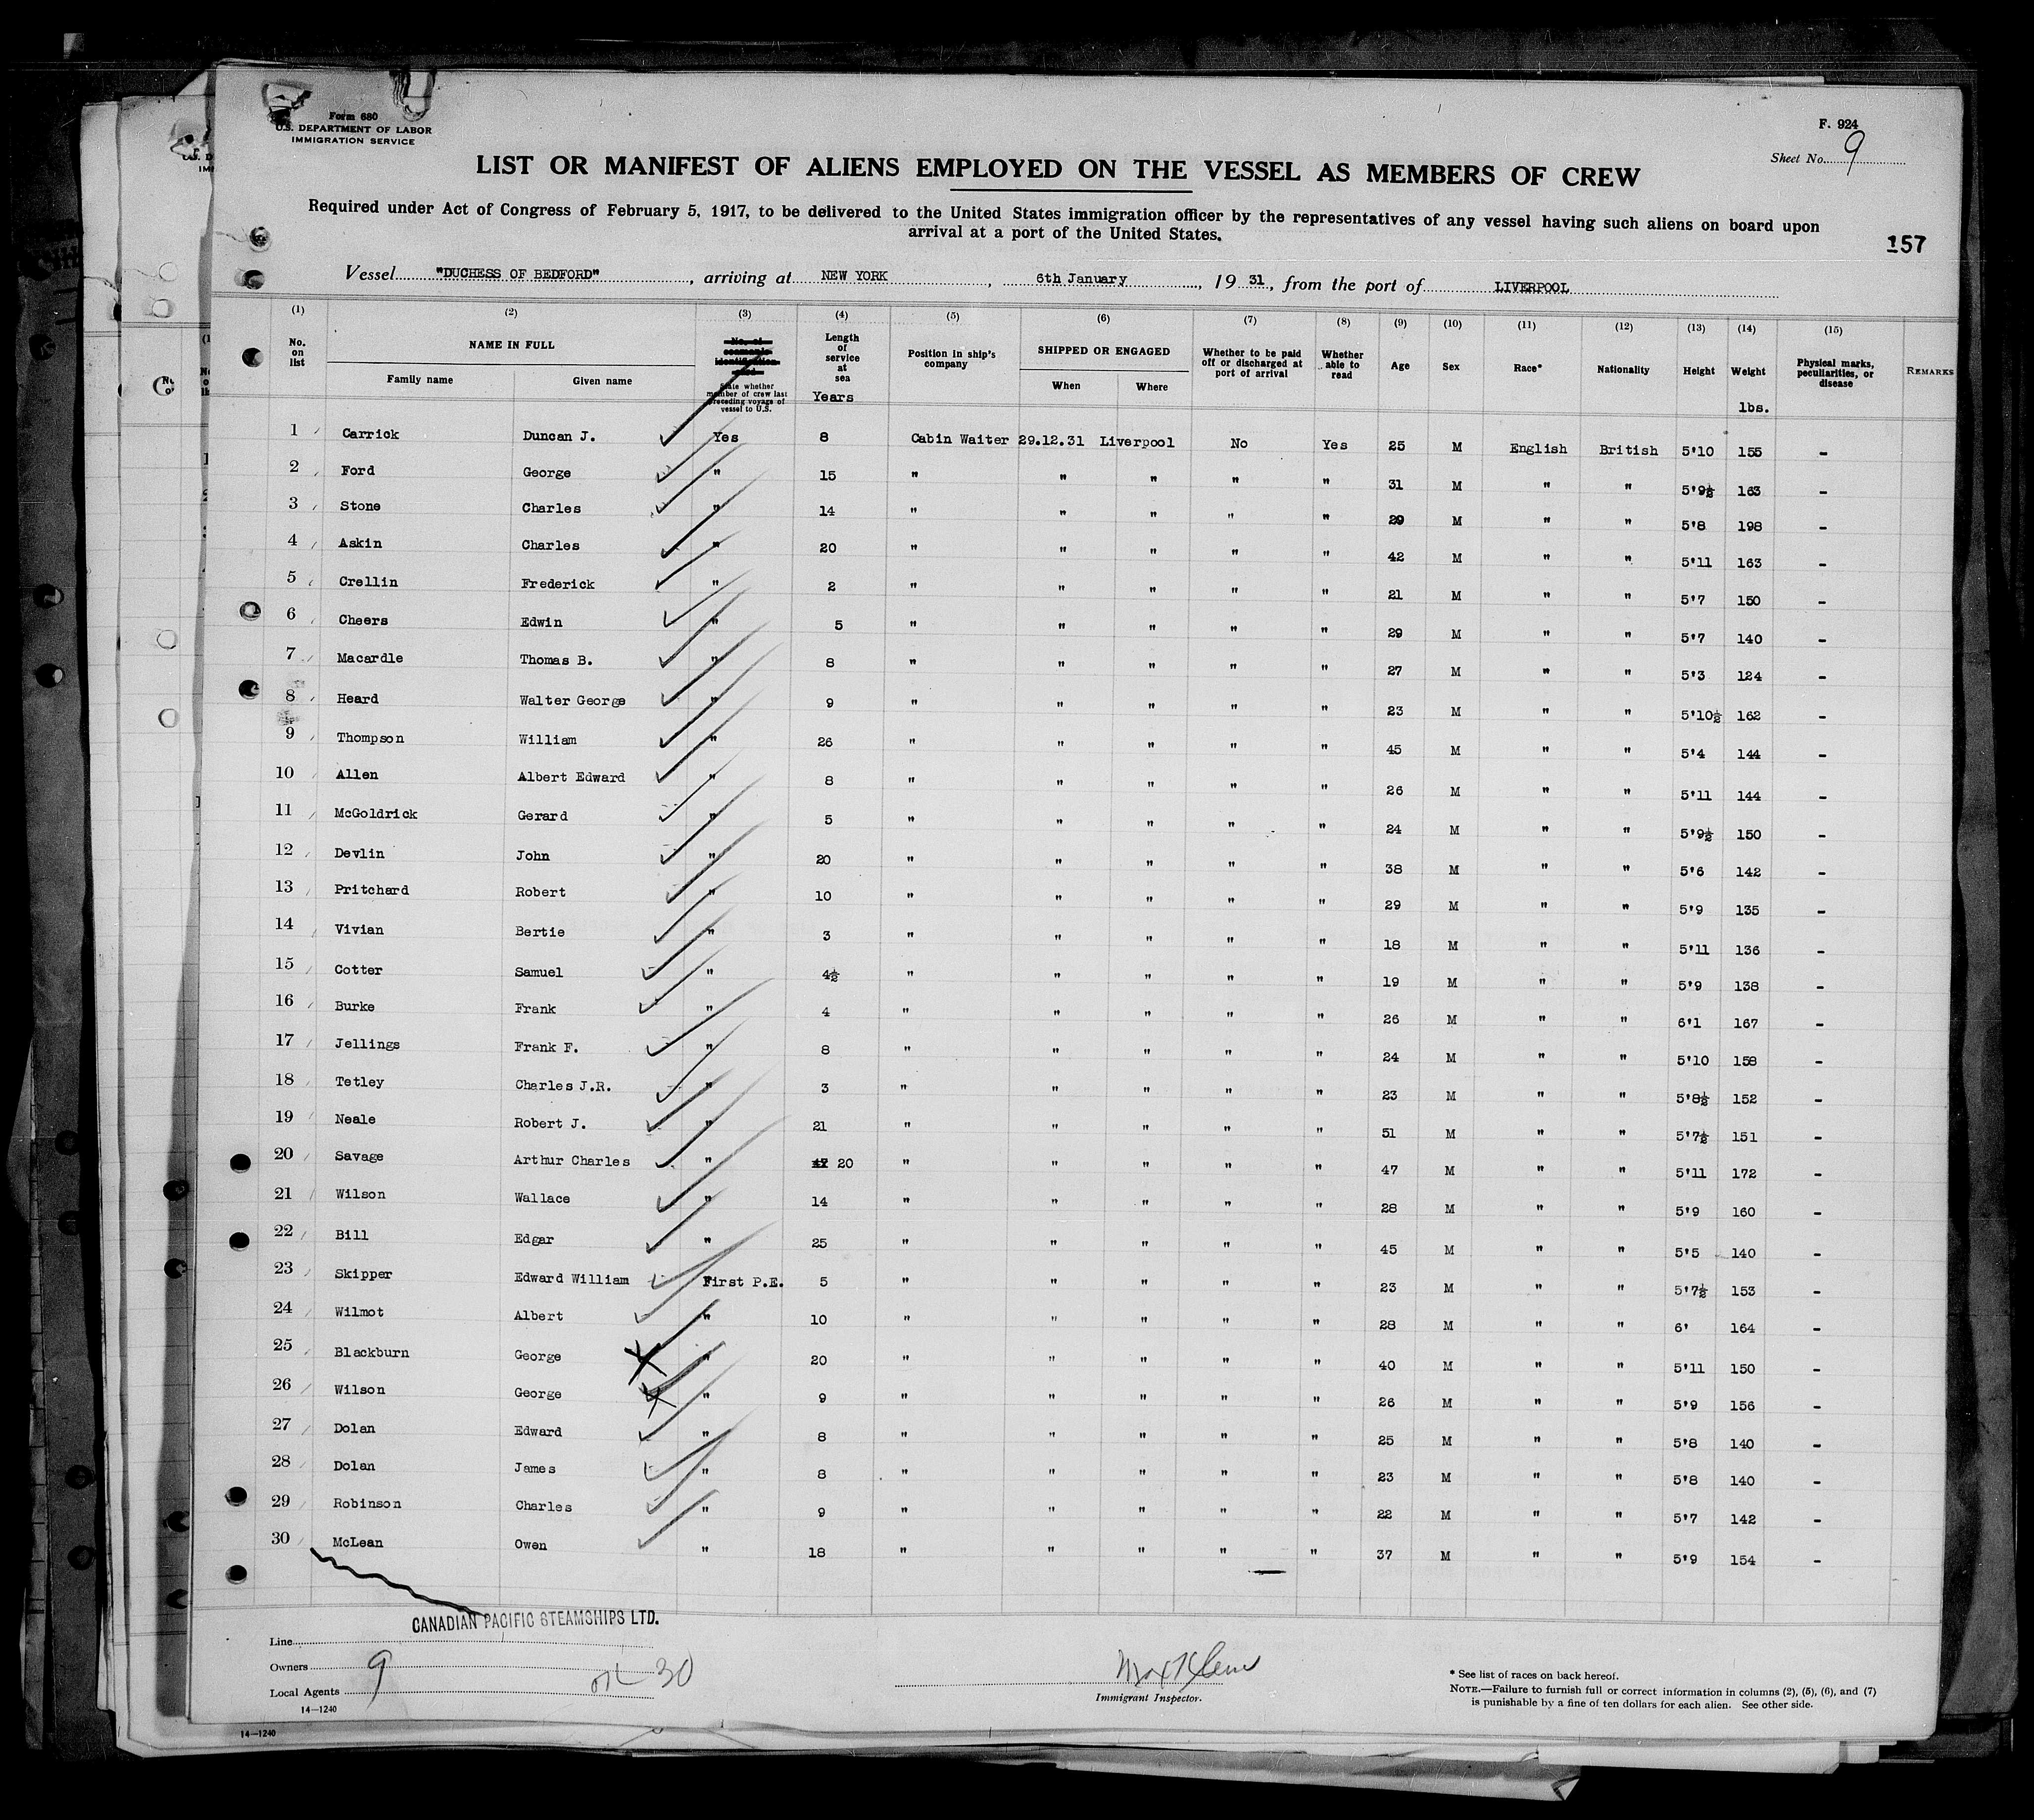 Form 680
U.S. DEPARTMENT OF LABOR
IMMIGRATION SERVICE
F. 924
Sheet No. 9
LIST OR MANIFEST OF ALIENS EMPLOYED ON THE VESSEL AS MEMBERS OF CREW
Required under Act of Congress of February 5, 1917, to be delivered to the United States immigration officer by the representatives of any vessel having such aliens on board upon
arrival at a port of the United States.
157
Vessel "DUCHESS OF BEDFORD", arriving at NEW YORK, 6th January, 1931, from the port of LIVERPOOL
(1) (2) (3) (4) (5) (6) (7) (8) (9) (10) (11) (12) (13) (14) (15)
No. on list NAME IN FULL Family name Given name No. of seaman's identification card State whether member of crew last preceding voyage of vessel to U.S. Length of service at sea Years Position in ship's company SHIPPED OR ENGAGED When Where Whether to be paid off or discharged at port of arrival Whether able to read Age Sex Race* Nationality Height Weight lbs. Physical marks, peculiarities, or disease REMARKS
1 Carrick Duncan J. Yes 8 Cabin Waiter 29.12.31 Liverpool No Yes 25 M English British 5'10 155 -
2 Ford George " 15 " " " " " 31 M " " 5'9½ 163 -
3 Stone Charles " 14 " " " " " 29 M " " 5'8 198 -
4 Askin Charles " 20 " " " " " 42 M " " 5'11 163 -
5 Crellin Frederick " 2 " " " " " 21 M " " 5'7 150 -
6 Cheers Edwin " 5 " " " " " 29 M " " 5'7 140 -
7 Macardle Thomas B. " 8 " " " " " 27 M " " 5'3 124 -
8 Heard Walter George " 9 " " " " " 23 M " " 5'10½ 162 -
9 Thompson William " 26 " " " " " 45 M " " 5'4 144 -
10 Allen Albert Edward " 8 " " " " " 26 M " " 5'11 144 -
11 McGoldrick Gerard " 5 " " " " " 24 M " " 5'9½ 150 -
12 Devlin John " 20 " " " " " 38 M " " 5'6 142 -
13 Pritchard Robert " 10 " " " " " 29 M " " 5'9 135 -
14 Vivian Bertie " 3 " " " " " 18 M " " 5'11 136 -
15 Cotter Samuel " 4½ " " " " " 19 M " " 5'9 138 -
16 Burke Frank " 4 " " " " " 26 M " " 6'1 167 -
17 Jellings Frank F. " 8 " " " " " 24 M " " 5'10 158 -
18 Tetley Charles J.R. " 3 " " " " " 23 M " " 5'8½ 152 -
19 Neale Robert J. " 21 " " " " " 51 M " " 5'7½ 151 -
20 Savage Arthur Charles " 47 20 " " " " " 47 M " " 5'11 172 -
21 Wilson Wallace " 14 " " " " " 28 M " " 5'9 160 -
22 Bill Edgar " 25 " " " " " 45 M " " 5'5 140 -
23 Skipper Edward William First P.E. 5 " " " " " 23 M " " 5'7½ 153 -
24 Wilmot Albert " 10 " " " " " 28 M " " 6' 164 -
25 Blackburn George " 20 " " " " " 40 M " " 5'11 150 -
26 Wilson George " 9 " " " " " 26 M " " 5'9 156 -
27 Dolan Edward " 8 " " " " " 25 M " " 5'8 140 -
28 Dolan James " 8 " " " " " 23 M " " 5'8 140 -
29 Robinson Charles " 9 " " " " " 22 M " " 5'7 142 -
30 McLean Owen " 18 " " " " " 37 M " " 5'9 154 -
CANADIAN PACIFIC STEAMSHIPS LTD.
Line
Owners
Local Agents
9
30
14—1240
Immigrant Inspector.
* See list of races on back hereof.
NOTE.—Failure to furnish full or correct information in columns (2), (5), (6), and (7)
is punishable by a fine of ten dollars for each alien. See other side.
14—1240